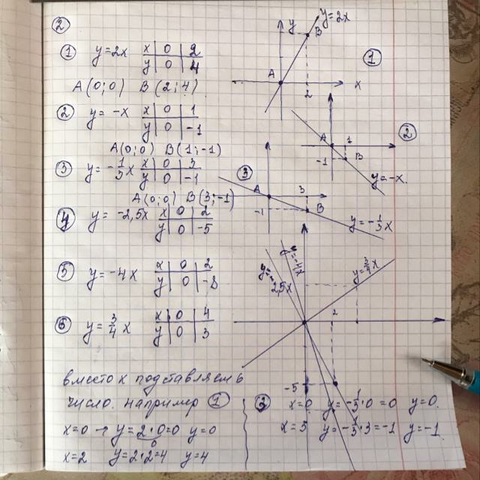 ②
① y=2x x 0 2
y 0 4
A(0;0) B(2;4)
② y=-x x 0 1
y 0 -1
A(0;0) B(1;-1)
③ y=-1/3x x 0 3
y 0 -1
A(0;0) B(3;-1)
④ y=-2,5x x 0 2
y 0 -5
⑤ y=-4x x 0 2
y 0 -8
⑥ y=3/4x x 0 4
y 0 3
вместо x подставляем
число. Например ①
x=0 → y=2·0=0 y=0
x=2 y=2·2=4 y=4
③ x=0 y=-1/3·0=0 y=0
x=3 y=-1/3·3=-1 y=-1
y
y=2x
B
A
2
x
①
A
1
-1
B
②
y=-x
③
A
3
-1
B
y=-1/3x
y=-4x
y=-2,5x
y=3/4x
2
-5